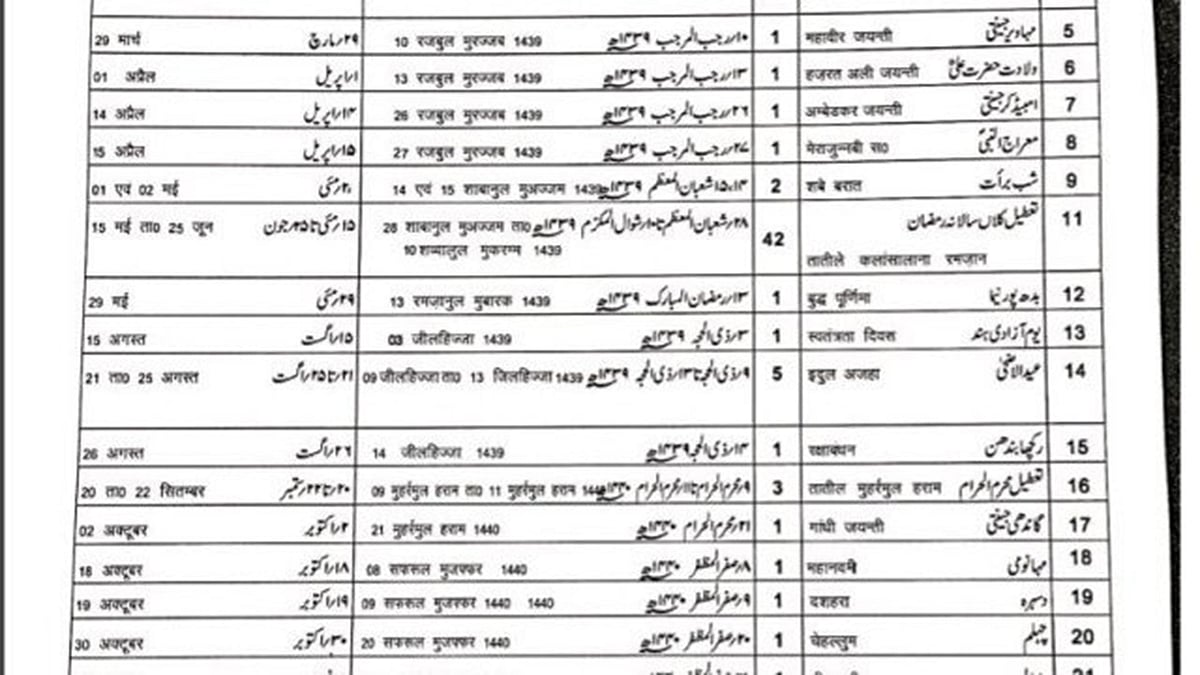 29 मार्च ۲۹؍مارچ 10 रजबुल मुरज्जब 1439 ۱۰؍رجب المرجب ۱۴۳۹ھ 1 महावीर जयन्ती مہاویر جینتی 5
01 अप्रैल ۱؍اپریل 13 रजबुल मुरज्जब 1439 ۱۳؍رجب المرجب ۱۴۳۹ھ 1 हज़रत अली जयन्ती ولادت حضرت علیؓ 6
14 अप्रैल ۱۴؍اپریل 26 रजबुल मुरज्जब 1439 ۲۶؍رجب المرجب ۱۴۳۹ھ 1 अम्बेडकर जयन्ती امبیڈکر جینتی 7
15 अप्रैल ۱۵؍اپریل 27 रजबुल मुरज्जब 1439 ۲۷؍رجب المرجب ۱۴۳۹ھ 1 मेराजुन्नबी स0 معراج النبیؐ 8
01 एवं 02 मई ۲؍مئی 14 एवं 15 शाबानुल मुअज्जम 1439 ۱۴،۱۵؍شعبان المعظم ۱۴۳۹ھ 2 शबे बरात شب برأت 9
15 मई ता0 25 जून ۱۵؍مئی تا ۲۵؍جون 28 शाबानुल मुअज्जम ता0 ۲۸؍شعبان المعظم تا ۱۰؍شوال المکرم ۱۴۳۹ھ تعطیل کلاں سالانہ رمضان 11
10 शव्वालुल मुकरम्म 1439 42 तातीले कलांसालाना रमज़ान
29 मई ۲۹؍مئی 13 रमज़ानुल मुबारक 1439 ۱۳؍رمضان المبارک ۱۴۳۹ھ 1 बुद्ध पूर्णिमा بدھ پورنیما 12
15 अगस्त ۱۵؍اگست 03 जीलहिज्जा 1439 ۳؍ذی الحجہ ۱۴۳۹ھ 1 स्वतंत्रता दिवस یوم آزادی ہند 13
21 ता0 25 अगस्त ۲۱؍تا ۲۵؍اگست 09 जीलहिज्जा ता0 13 जिलहिज्जा 1439 ۹؍ذی الحجہ تا ۱۳؍ذی الحجہ ۱۴۳۹ھ 5 इदुल अजहा عیدالاضحیٰ 14
26 अगस्त ۲۶؍اگست 14 जीलहिज्जा 1439 ۱۴؍ذی الحجہ ۱۴۳۹ھ 1 रक्षाबंधन رکچھا بندھن 15
20 ता0 22 सितम्बर ۲۰؍تا ۲۲؍ستمبر 09 मुहर्रमुल हराम ता0 11 मुहर्रमुल हराम ۹؍محرم الحرام تا ۱۱؍محرم الحرام ۱۴۴۰ھ 3 तातील मुहर्रमुल हराम تعطیل محرم الحرام 16
02 अक्टूबर ۲؍اکتوبر 21 मुहर्रमुल हराम 1440 ۲۱؍محرم الحرام ۱۴۴۰ھ 1 गांधी जयन्ती گاندھی جینتی 17
18 अक्टूबर ۱۸؍اکتوبر 08 सफरूल मुजफ्फर 1440 ۸؍صفر المظفر ۱۴۴۰ھ 1 महानवमी مہانومی 18
19 अक्टूबर ۱۹؍اکتوبر 09 सफरूल मुजफ्फर 1440 1440 ۹؍صفر المظفر ۱۴۴۰ھ 1 दशहरा دسہرہ 19
30 अक्टूबर ۳۰؍اکتوبر 20 सफरूल मुजफ्फर 1440 ۲۰؍صفر المظفر ۱۴۴۰ھ 1 चेहल्लुम چہلم 20